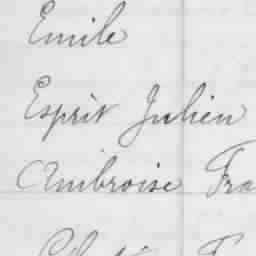 Emile
Esprit Julien
Ambroise Fra